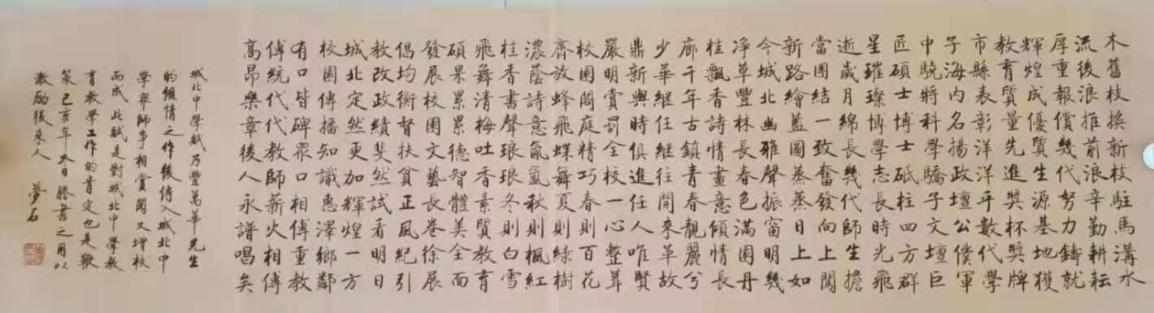 木舊枝換新枝駐馬溝水
流後浪推前浪辛勤耕耘
厚重報償幾代努力鑄就
輝煌成優質生源基地獲
教育質量先進獎杯獎牌
市縣表彰洋洋乎數代學
子海内名揚政壇公僕軍
中驍將科學驕子文壇巨
匠碩士博士砥柱四方群
星璀璨博學志長時光飛
逝歲月綿長幾代師生擔
當團結一致奮發向上闖
新路繪藍圖蒸蒸日上如
今城北幽雅聲振窗明幾
净草豐林長春色滿園丹
桂飄香詩情畫意傾情長
廊千年古鎮青春靚麗兮
少華繼任繼往開來革故
鼎新與時俱進任人唯賢
嚴明賞罰全校一心整茸
校園閣庭精巧春則百花
齊放蜂飛蝶舞夏則綠樹
濃蔭詩意氤氲秋則楓紅
桂香書聲琅琅冬則白雪
飛舞清梅吐香素質教育
碩果累累德智體美全面
發展校園文藝長卷徐展
倡均衡督扶貧正風紀引
教改政績斐然試看明日
城北定然更加輝煌一方
校園傳播知識惠澤鄉鄰
有口皆碑眾口相傳重教
傳統代代教師薪火相傳
高昂樂章後人永譜唱矣
城北中學賦乃豐萬華先生
的傾情之作後傳入城北中
學常師亭相賞閣又增校
而成此賦是對城北中學教
育教學工作的肯定也是鞭
策己亥年冬日滕書之用以
激勵後來人 夢石